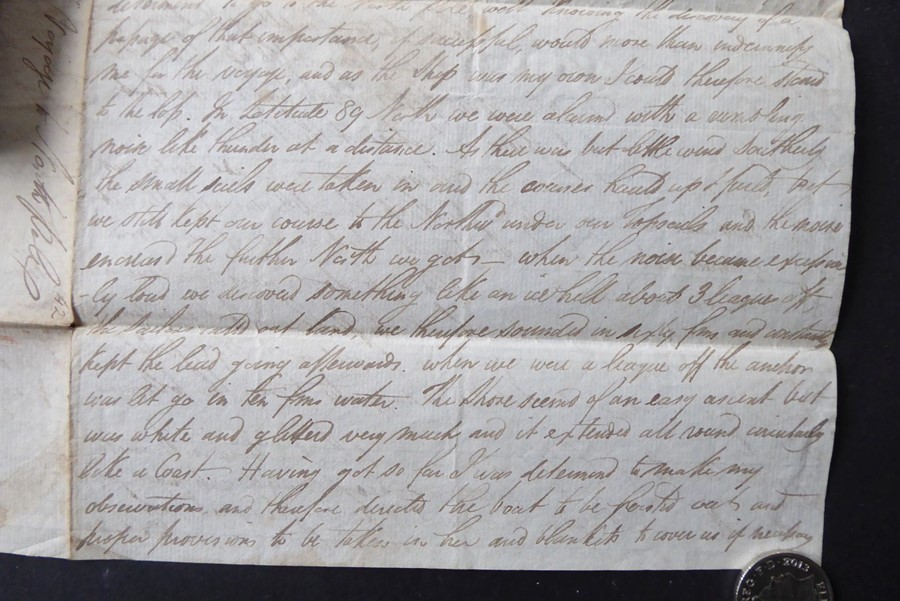 determined to go to the North Pole, well knowing the discovery of a
passage of that importance, if successful, would more than indemnify
me for the voyage, and as the Ship was my own I could therefore stand
to the loss. In Latitude 89 North we were alarmd with a rumbling
noise like thunder at a distance. As there was but little wind Southerly
the small sails were taken in and the courses hauld up & furld, but
we still kept our course to the Northwd under our Topsails and the noise
encreasd the further North we got — when the noise became excessive
-ly loud we discoverd something like an ice hill about 3 leagues off,
the calld out land, we therefore sounded in sixty fms and constantly
kept the lead going afterwards. when we were a league off the anchor
was let go in ten fms water. The Shore seemd of an easy ascent but
was white and glitterd very much, and it extended all round circularly
like a Coast. Having got so far I was determind to make my
observations, and therefore directed the boat to be hoisted out and
proper provisions to be taken in her and blankets to cover us if necessary
Voyage to North Pole
42
2012